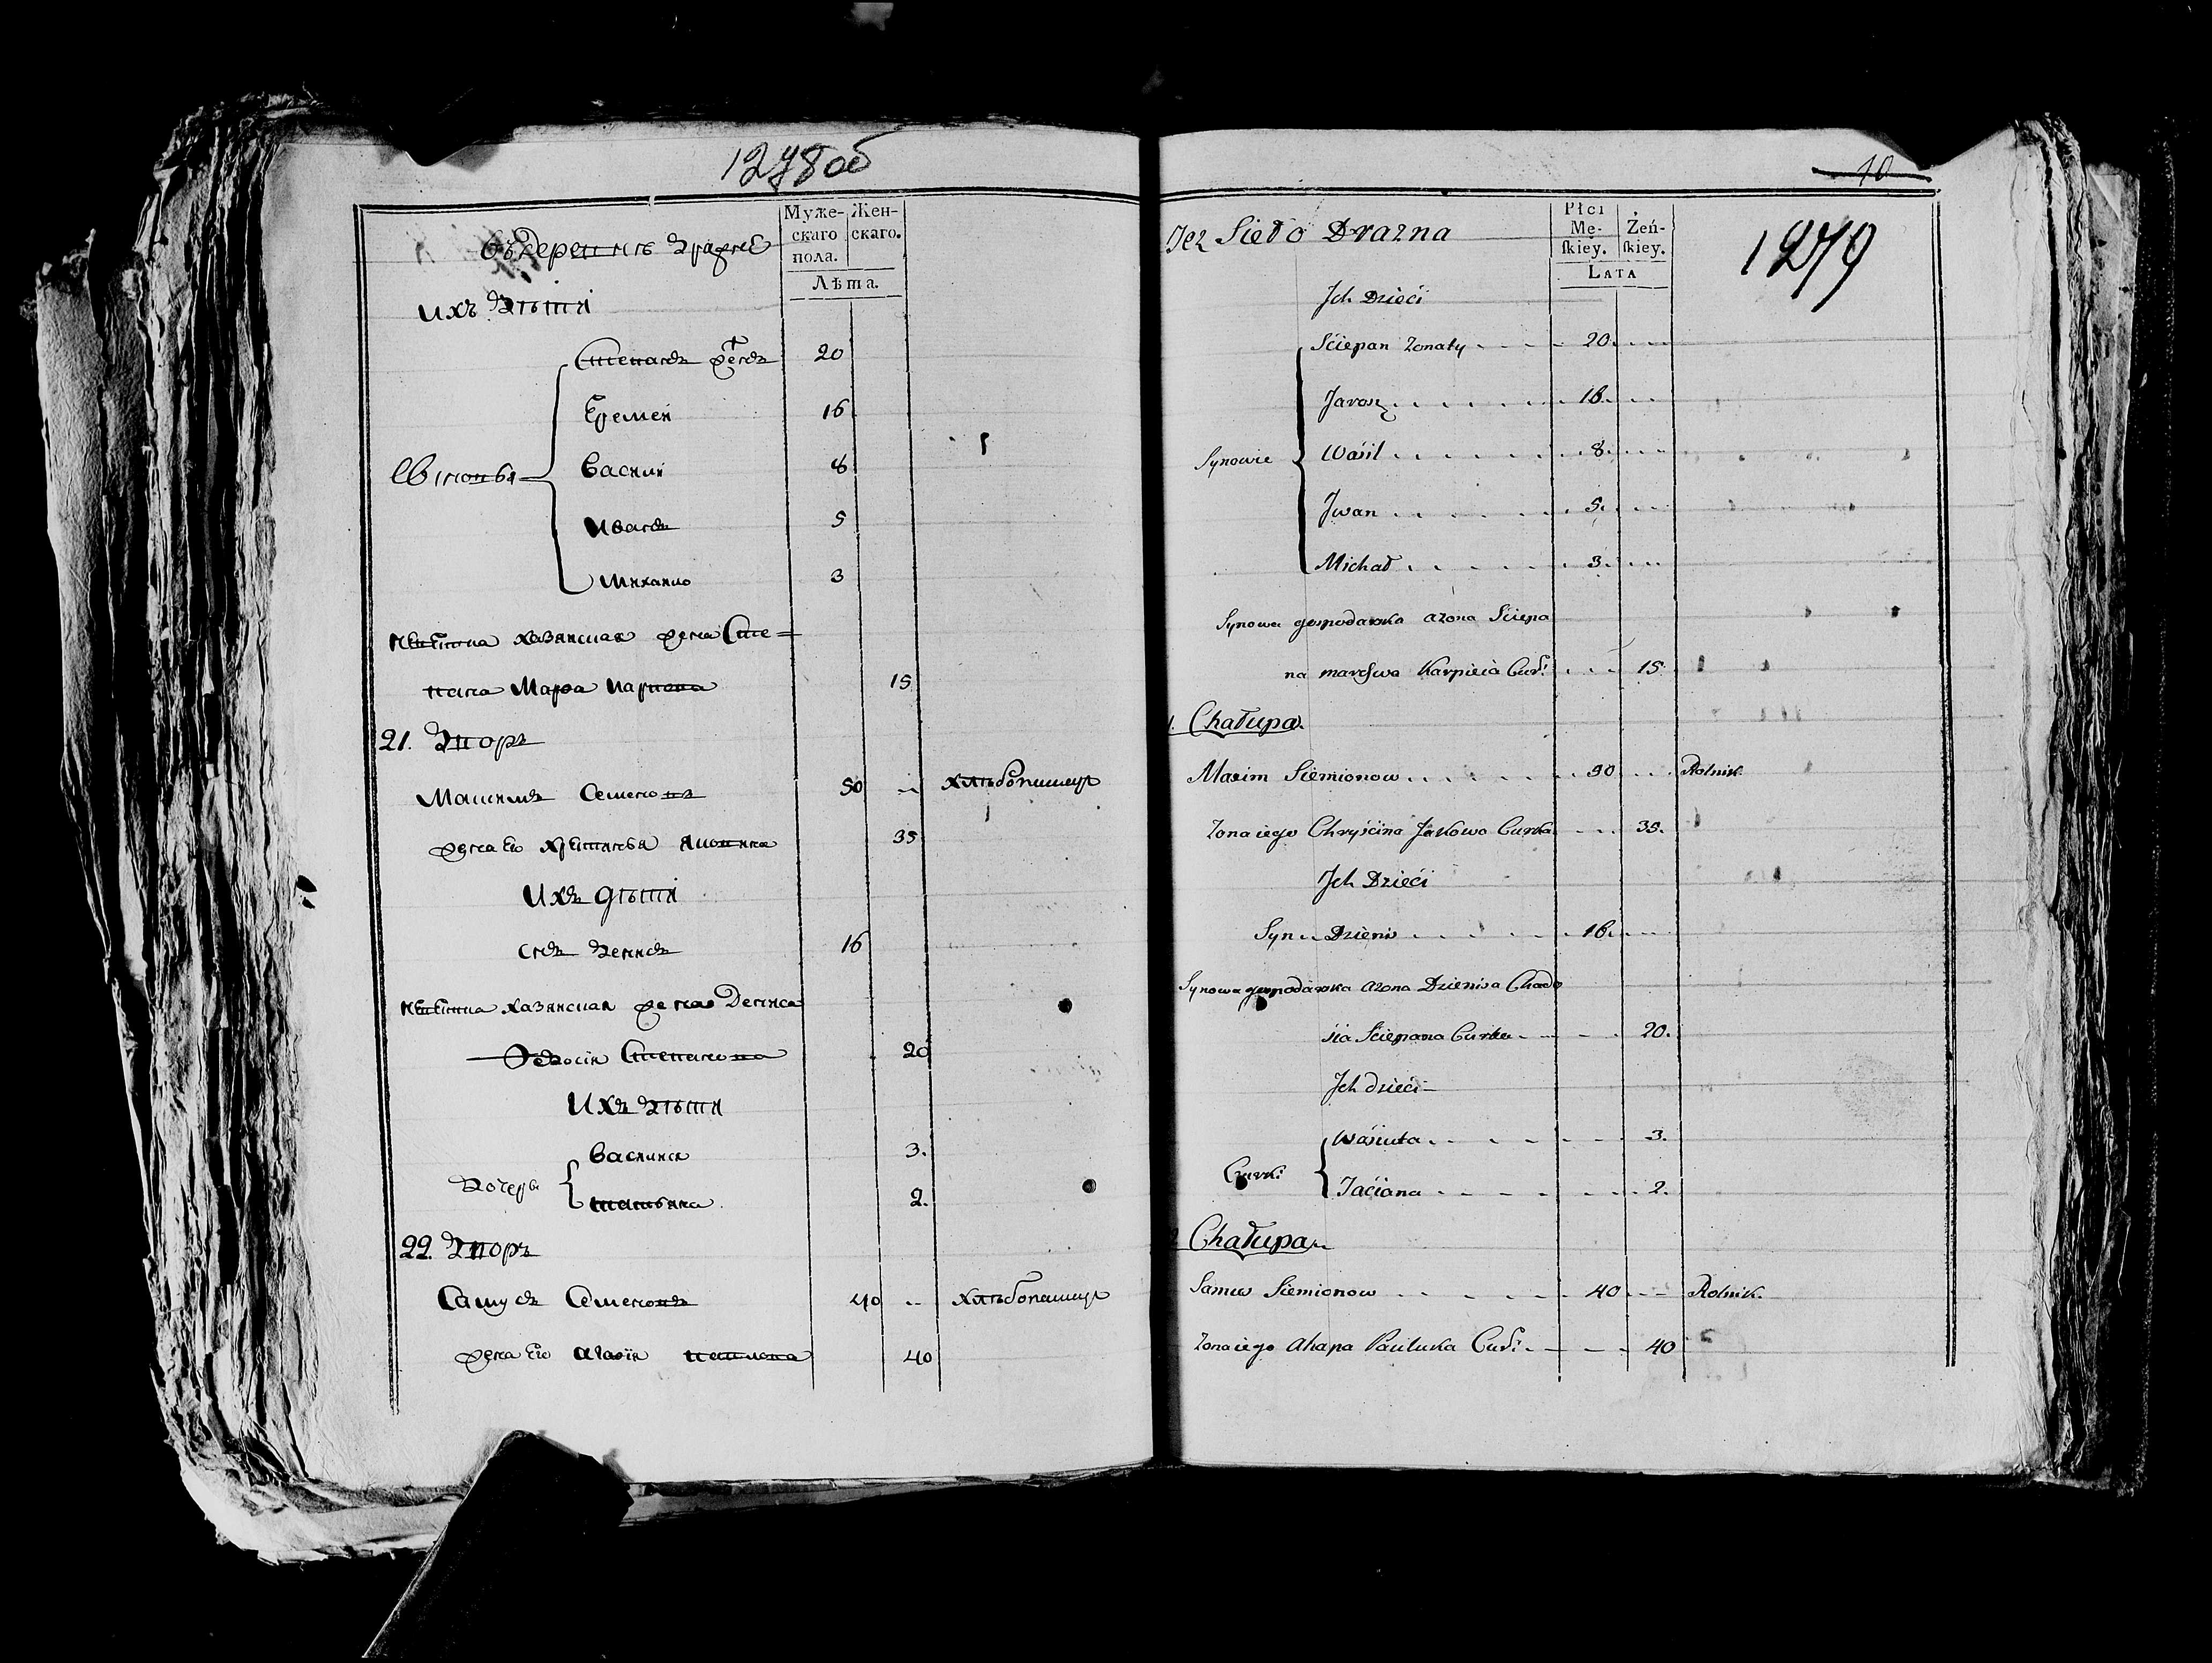 1278об
въ деревнѣ Дражнѣ
Муже-скаго пола.
Жен-скаго.
Лѣта.
ихъ Дѣти
Степанъ женъ 20
Еремей 16
Сыновья
Василій 8
Иванъ 5
Михайло 3
невѣстка хазяйская жена Сте=
пана Марфа Карпова 15
21. Дворъ
Максимъ Семеновъ 50 хлѣбопашецъ
жена Его Христинья Яковлева 35
Ихъ дѣти
сынъ Денисъ 16
невѣстка хазяйская жена Дениса
Федосія Степанова 20
Ихъ Дѣти
Дочерьи
Василиса 3.
татьяна 2.
22. Дворъ
Самуеъ Семеновъ 40 хлѣбопашецъ
жена Его Агафія павлова 40
10
1279
Też Sieło Drazna
Płci Mę-skiey.
Żeń-skiey.
LATA
Jch Dzieci
Sciepan Zonaty 20.
Jarosz 16.
Synowie
Waśil 8.
Jwan 5.
Michał 3.
Synowa gospodarska a zona Sciepa
na marchwa Karpieia Curk: 15
1. Chałupa.
Maxim Siemionow 50 Rolnik.
Zona iego Chryścina Jakowa Curka 35.
Jch Dzieci
Syn Dzienis 16.
Synowa gospodarska a zona Dzienisa Chado
sia Sciepana Curka 20.
Jch dzieci
Curki
Waśiuta 3.
Taciana 2.
Chałupa
Samus Siemionow 40 Rolnik.
Zona iego Ahapa Pauluka Curk: 40